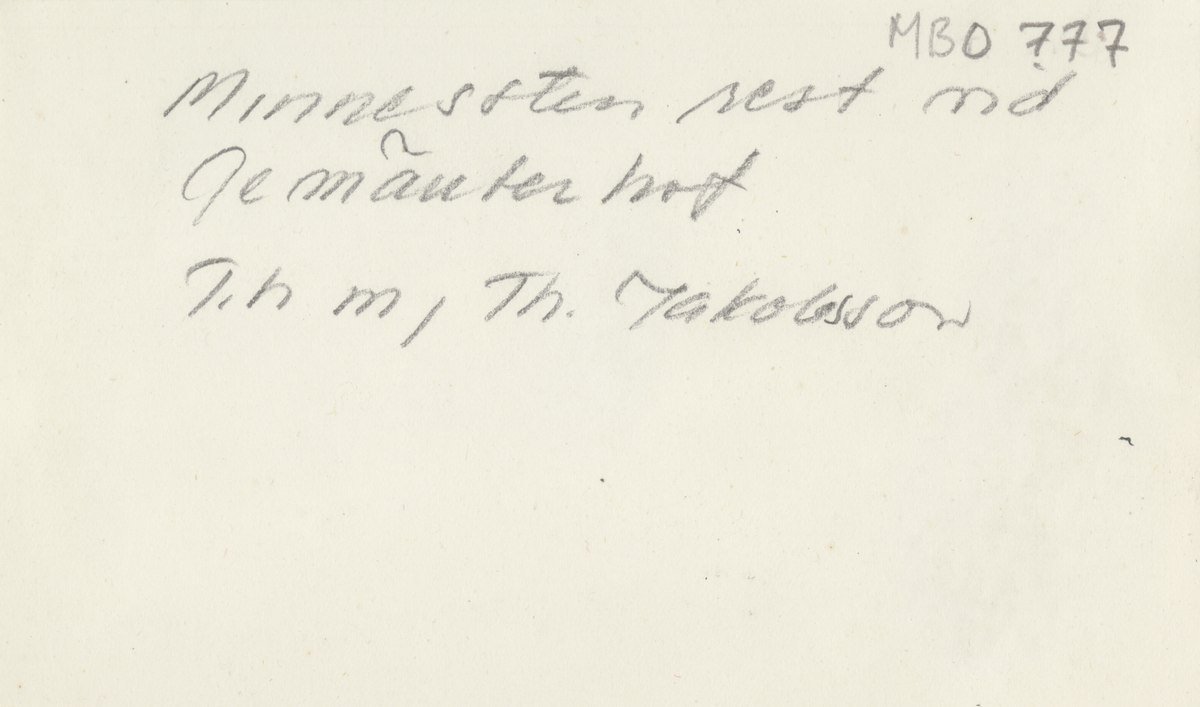 MBO 777
Minnessten rest vid
Gemäuterhof
T.h m, Th. Jakobsson